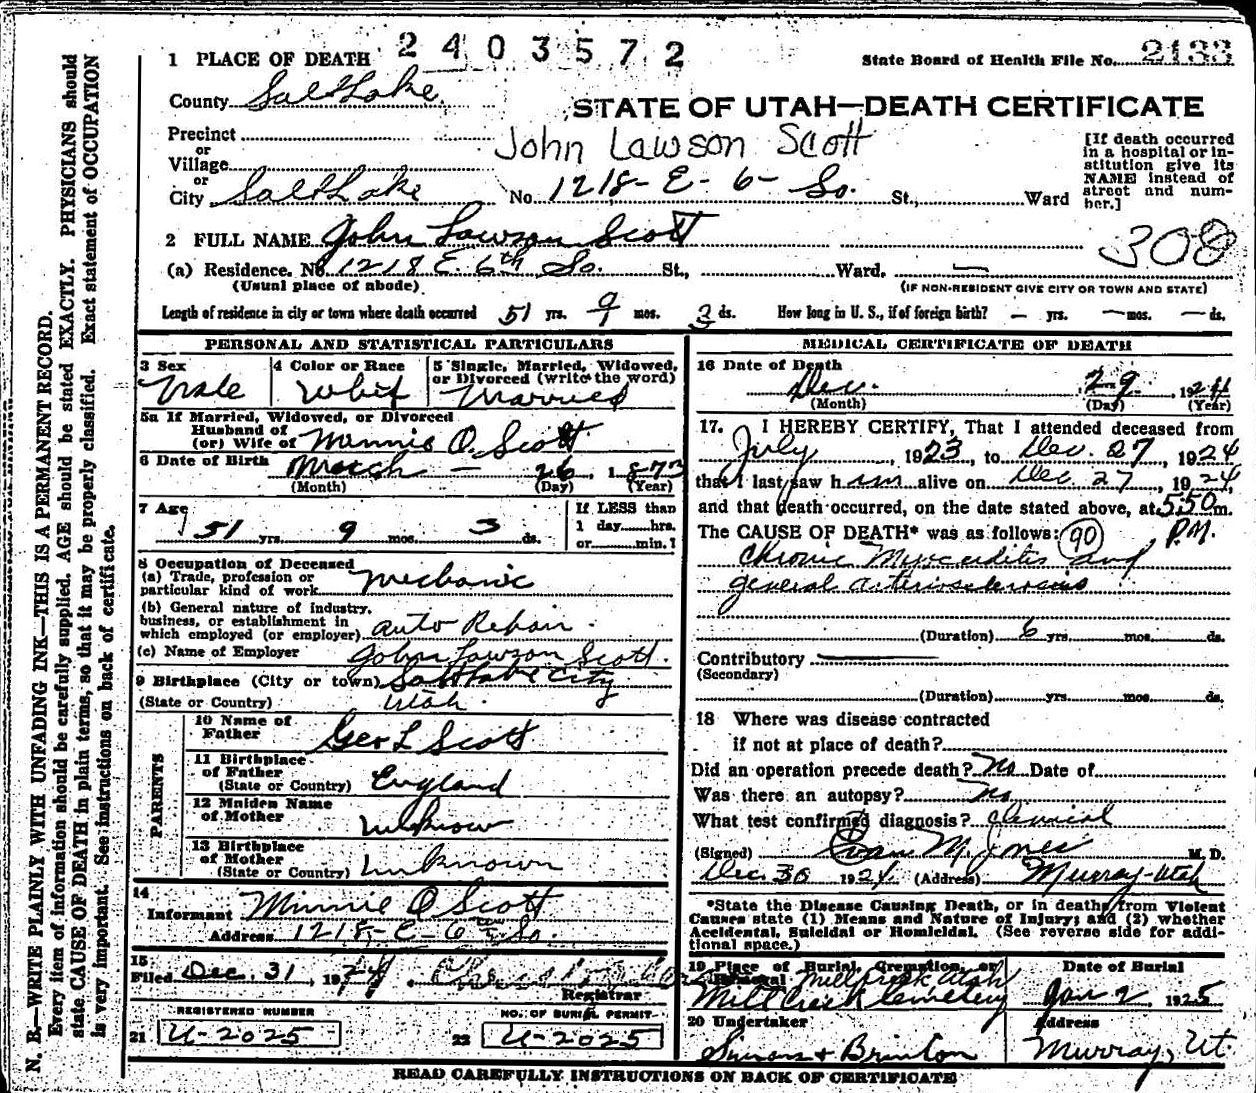 2403572
1 PLACE OF DEATH
State Board of Health File No. 2133
County Salt Lake
STATE OF UTAH—DEATH CERTIFICATE
Precinct
John Lawson Scott
or
Village
or
City Salt Lake No. 1218- E- 6- So. St., Ward
[If death occurred
in a hospital or in-
stitution give its
NAME instead of
street and num-
ber.]
2 FULL NAME John Lawson Scott
308
(a) Residence. No. 1218 E. 6th So. St., Ward, —
(Usual place of abode)
(IF NON-RESIDENT GIVE CITY OR TOWN AND STATE)
Length of residence in city or town where death occurred 51 yrs. 9 mos. 3 ds. How long in U. S., if of foreign birth? — yrs. — mos. — ds.
PERSONAL AND STATISTICAL PARTICULARS
3 Sex
Male
4 Color or Race
White
5 Single, Married, Widowed,
or Divorced (write the word)
Married
5a If Married, Widowed, or Divorced
Husband of
(or) Wife of Minnie O. Scott
6 Date of Birth March — 26, 1873
(Month) (Day) (Year)
7 Age
51 yrs. 9 mos. 3 ds.
If LESS than
1 day......hrs.
or......min.?
8 Occupation of Deceased
(a) Trade, profession or
particular kind of work Mechanic
(b) General nature of industry,
business, or establishment in
which employed (or employer) Auto Repair.
(c) Name of Employer John Lawson Scott.
9 Birthplace (City or town) Salt Lake City
(State or Country) Utah.
PARENTS
10 Name of
Father Geo L Scott
11 Birthplace
of Father
(State or Country) England
12 Maiden Name
of Mother Unknow
13 Birthplace
of Mother
(State or Country) Unknown
14
Informant Minnie O Scott
Address 1218- E- 6th So.
15
Filed Dec. 31, 1924
Registrar
REGISTERED NUMBER
21 U-2025
NO. OF BURIAL PERMIT
22 U-2025
MEDICAL CERTIFICATE OF DEATH
16 Date of Death
Dec. 29, 1924
(Month) (Day) (Year)
17. I HEREBY CERTIFY, That I attended deceased from
July, 1923, to Dec. 27, 1924
that I last saw him alive on Dec. 27, 1924,
and that death occurred, on the date stated above, at 5:50 m.
P.M.
The CAUSE OF DEATH* was as follows: 90
Chronic Myocarditis and
general arteriosclerosis
(Duration) 6 yrs. mos. ds.
Contributory —
(Secondary)
(Duration) yrs. mos. ds.
18 Where was disease contracted
if not at place of death?
Did an operation precede death? No Date of
Was there an autopsy? No
What test confirmed diagnosis? Clinical
(Signed) Evan M. Jones M. D.
Dec. 30 1924. (Address) Murray-Utah
*State the Disease Causing Death, or in deaths from Violent
Causes state (1) Means and Nature of Injury; and (2) whether
Accidental, Suicidal or Homicidal. (See reverse side for addi-
tional space.)
19 Place of Burial, Cremation, or
Removal Millcreek Utah
Mill Creek Cemetery
Date of Burial
Jan 2, 1925
20 Undertaker
Simons & Brinton
Address
Murray, Ut.
READ CAREFULLY INSTRUCTIONS ON BACK OF CERTIFICATE
N. B.—WRITE PLAINLY WITH UNFADING INK—THIS IS A PERMANENT RECORD.
Every item of information should be carefully supplied. AGE should be stated EXACTLY. PHYSICIANS should
state CAUSE OF DEATH in plain terms, so that it may be properly classified. Exact statement of OCCUPATION
is very important. See instructions on back of certificate.